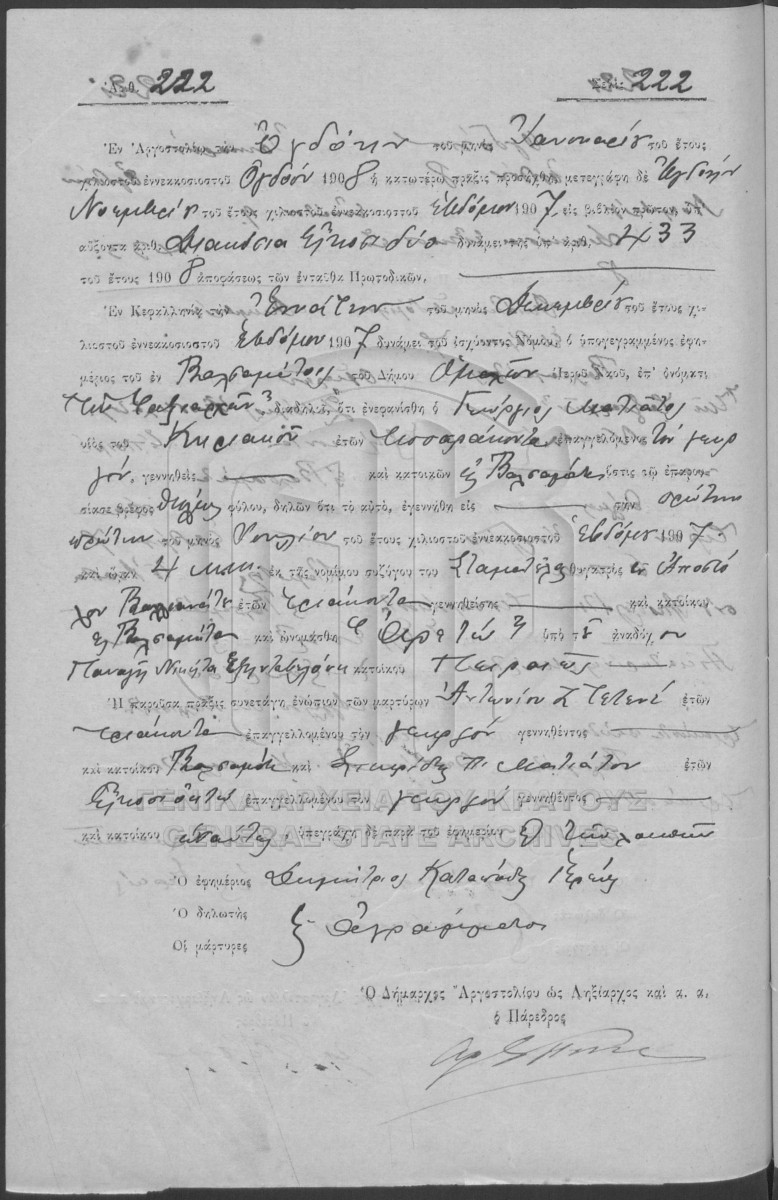 Ἀριθ. 222 Σελὶς 222
Ἐν Ἀργοστολίῳ τῇ Ὀγδόῃ τοῦ μηνὸς Ἰανουαρίου τοῦ ἔτους
χιλιοστοῦ ἐννεακοσιοστοῦ Ὀγδόου 1908 ἡ κατωτέρω πρᾶξις προσήχθη, μετεγράφη δὲ
Νοεμβρίου τοῦ ἔτους χιλιοστοῦ ἐννεακοσιοστοῦ Ἑβδόμου 1907 εἰς βιβλίον πρῶτον ὑπ'
αὔξοντα ἀριθ. Διακόσια Εἴκοσι δύο δυνάμει τῆς ὑπ' ἀριθ. 433
τοῦ ἔτους 1908 ἀποφάσεως τῶν ἐνταῦθα Πρωτοδικῶν,
Ἐν Κεφαλληνίᾳ τὴν Ἐννάτην τοῦ μηνὸς Δεκεμβρίου τοῦ ἔτους χι-
λιοστοῦ ἐννεακοσιοστοῦ Ἑβδόμου 1907 δυνάμει τοῦ ἰσχύοντος Νόμου, ὁ ὑπογεγραμμένος ἐφη-
μέριος τοῦ ἐν Βαλσαμάτοις τοῦ Δήμου Ὁμαλῶν Ἱεροῦ Ναοῦ, ἐπ' ὀνόματι
τῶν Ταξιαρχῶν διαδηλῶ, ὅτι ἐνεφανίσθη ὁ Γεώργιος Ματιάτος
υἱὸς τοῦ Κυριακοῦ ἐτῶν τεσσαράκοντα ἐπαγγελόμενος τὸν γεωρ
γόν, γεννηθεὶς καὶ κατοικῶν ἐν Βαλσαμάτοις ὅστις τῷ ἐπαρου-
σίασε βρέφος θῆλυ φύλου, δηλῶν ὅτι τὸ αὐτό, ἐγεννήθη εἰς τὴν πρώτην
πρώτην τοῦ μηνὸς Ἰουλίου τοῦ ἔτους χιλιοστοῦ ἐννεακοσιοστοῦ Ἑβδόμου 1907
καὶ ὥραν 4 μ.μ. ἐκ τῆς νομίμου συζύγου του Σταματέλας θυγατρὸς τοῦ Ἀποστό
λου ἐτῶν τριάκοντα γεννηθείσης καὶ κατοίκου
ἐν Βαλσαμάτοις καὶ ὠνομάσθη Ἀρετὼ ὑπὸ τοῦ ἀναδόχου
Παναγῆ Νικήτα κατοίκου Πειραιῶς
Ἡ παροῦσα πρᾶξις συνετάγη ἐνώπιον τῶν μαρτύρων Ἀντωνίου Σ. ἐτῶν
τριάκοντα ἐπαγγελλομένου τὸν γεωργόν γεννηθέντος
καὶ κατοίκου Βαλσαμάτοις καὶ Σπυρίδωνος Π. Ματιάτου ἐτῶν
ἐπαγγελλομένου τὸν γεωργόν γεννηθέντος
ΓΕΝΙΚΑ ΑΡΧΕΙΑ ΤΟΥ ΚΡΑΤΟΥΣ
GENERAL STATE ARCHIVES
καὶ κατοίκου ὑπεγράφη δὲ παρὰ τοῦ ἐφημερίου
Ὁ ἐφημέριος Δημήτριος Ἱερεύς
Ὁ δηλωτὴς
Οἱ μάρτυρες ἀγράμματοι
Ὁ Δήμαρχος Ἀργοστολίου ὡς Ληξίαρχος καὶ α. α.
ὁ Πάρεδρος